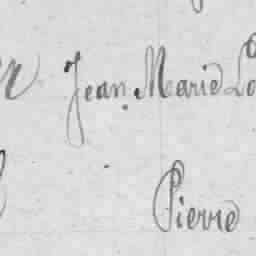 Jean Marie
Pierre